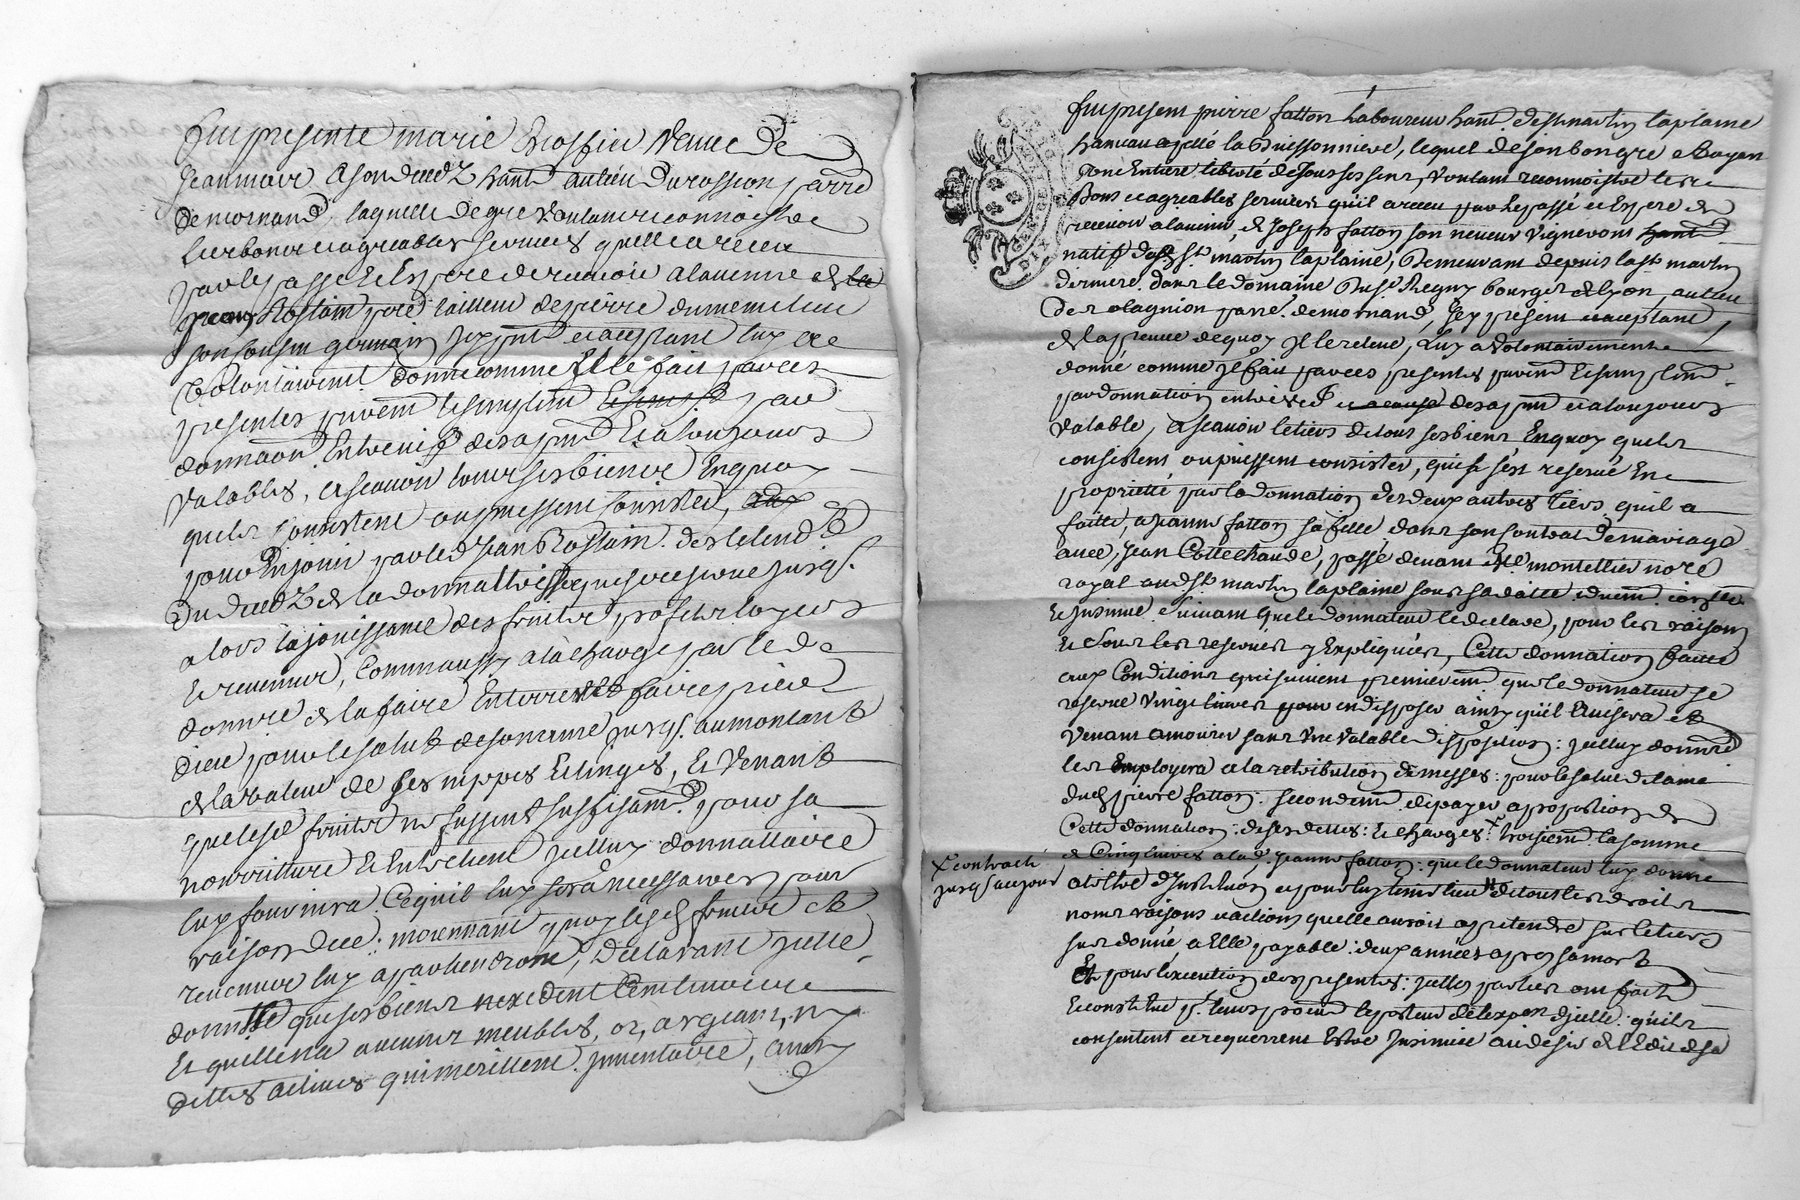 fut presente marie veuve de
Jean maire a son deced hant au lieu du rossion parre
de mornand laquelle de gre voulant reconnoistre
les bons et agreables services quelle a receu
par le passé et Espere de recevoir a lauenir de la
Rostain pere tailleur de pierre du meme lieu
son Cousin germain icy pnt et acceptant luy a
volontairemt donné comme Elle fait par ces
presentes purem et simplem par
donnaon Entreuifs des a pnt Et a tousjours
valables, a scauoir tous ses biens En quoy
quels Consistent ou puissent Consister,
pour En jouir par led Jean Rostain des le lend
du deced de la donnatrisse
alors la jouissance des fruits profits loyers
Et revenus, Comm aussy a la charge par le
donnre de la faire Enterrer faire prier
dieu pour le salut de son ame jusqs. au montant
de la valeur de ses nippes Et linges, Et Venant
que lesd fruits ne fussent suffisamt pour sa
nourriture Et Entretient Icelluy donnattaire
luy fournira Ce qu'il luy sera necessaires pour
raison de ce: moiennant quoy lesd fruits et
revenus luy apartiendront, declarant Icelle
donntte que ses biens n'excedent Cent livres
Et quelle n'a aucuns meubles, or, argeant, ny
dettes actives qui merittent jnventaire, ainsy
fut present pierre fatton Laboureur hant. de st martin laplaine
hameau apellé la Buissonniere, lequel de son bon gre
Entiere liberté de tous ses sens, voulant reconnoistre les
Bons et agreables services qu'il a receu par le passé et Espere de
recevoir a lauenir, de Joseph fatton son neueu vigneron hant
natif dud st martin laplaine, Demeurant depuis la st martin
derniere dans le domaine du sr Regny bourgeois de lyon, au lieu
de mornand, Icy present et acceptant
de la preuue de quoy Il le releue, luy a volontairement
donné comme Il fait par ces presentes purem Et simplem
par donnation entreuifs et a cause des a pnt et a tousjours
valable, a scauoir le tiers de tous ses biens En quoy quils
consistent ou puissent consister, qu'il s'est reservé En
proprietté par la donnation des deux autres tiers quil a
faitte, a jeanne fatton sa fille dans son Contrat de mariage
avec Jean Cottechaude, passé devant Me montellier nore
royal aud st martin laplaine sous sa datte duemt. conlle
Et Insinué suivant que le donnateur le declare, pour les raisons
Et sous les reserves y Expliquées, Cette donnation faitte
aux Conditions qui suivent premierem que le donnateur se
reserve vingt liures pour en disposer ainsy qu'il auisera et
venant a mourir sans une valable disposition: Icelluy donnre
les Employera a la retribution de messes: pour le salut de lame
dud pierre fatton: secondem de payer a proportion de
Cette donnation: de ses dettes: Et charges x troisiem la somme
x contracté
jusqs aujour
de Cinq liures a lad. Jeanne fatton: que le donnateur luy donne
a titre d'Institution et pour luy tenir lieu de tous les droits
noms raisons et actions quelle auroit a pretendre sur le tiers
sus donné, a Elle payable: deux années apres sa mort
Et pour l'execution des presentes: Icelles parties ont fait
Et constitué pr. leurs procur le porteur de l'expon d'jcelle: quils
consentent et requerrent Estre Insinuée au desir de l'Edit de sa